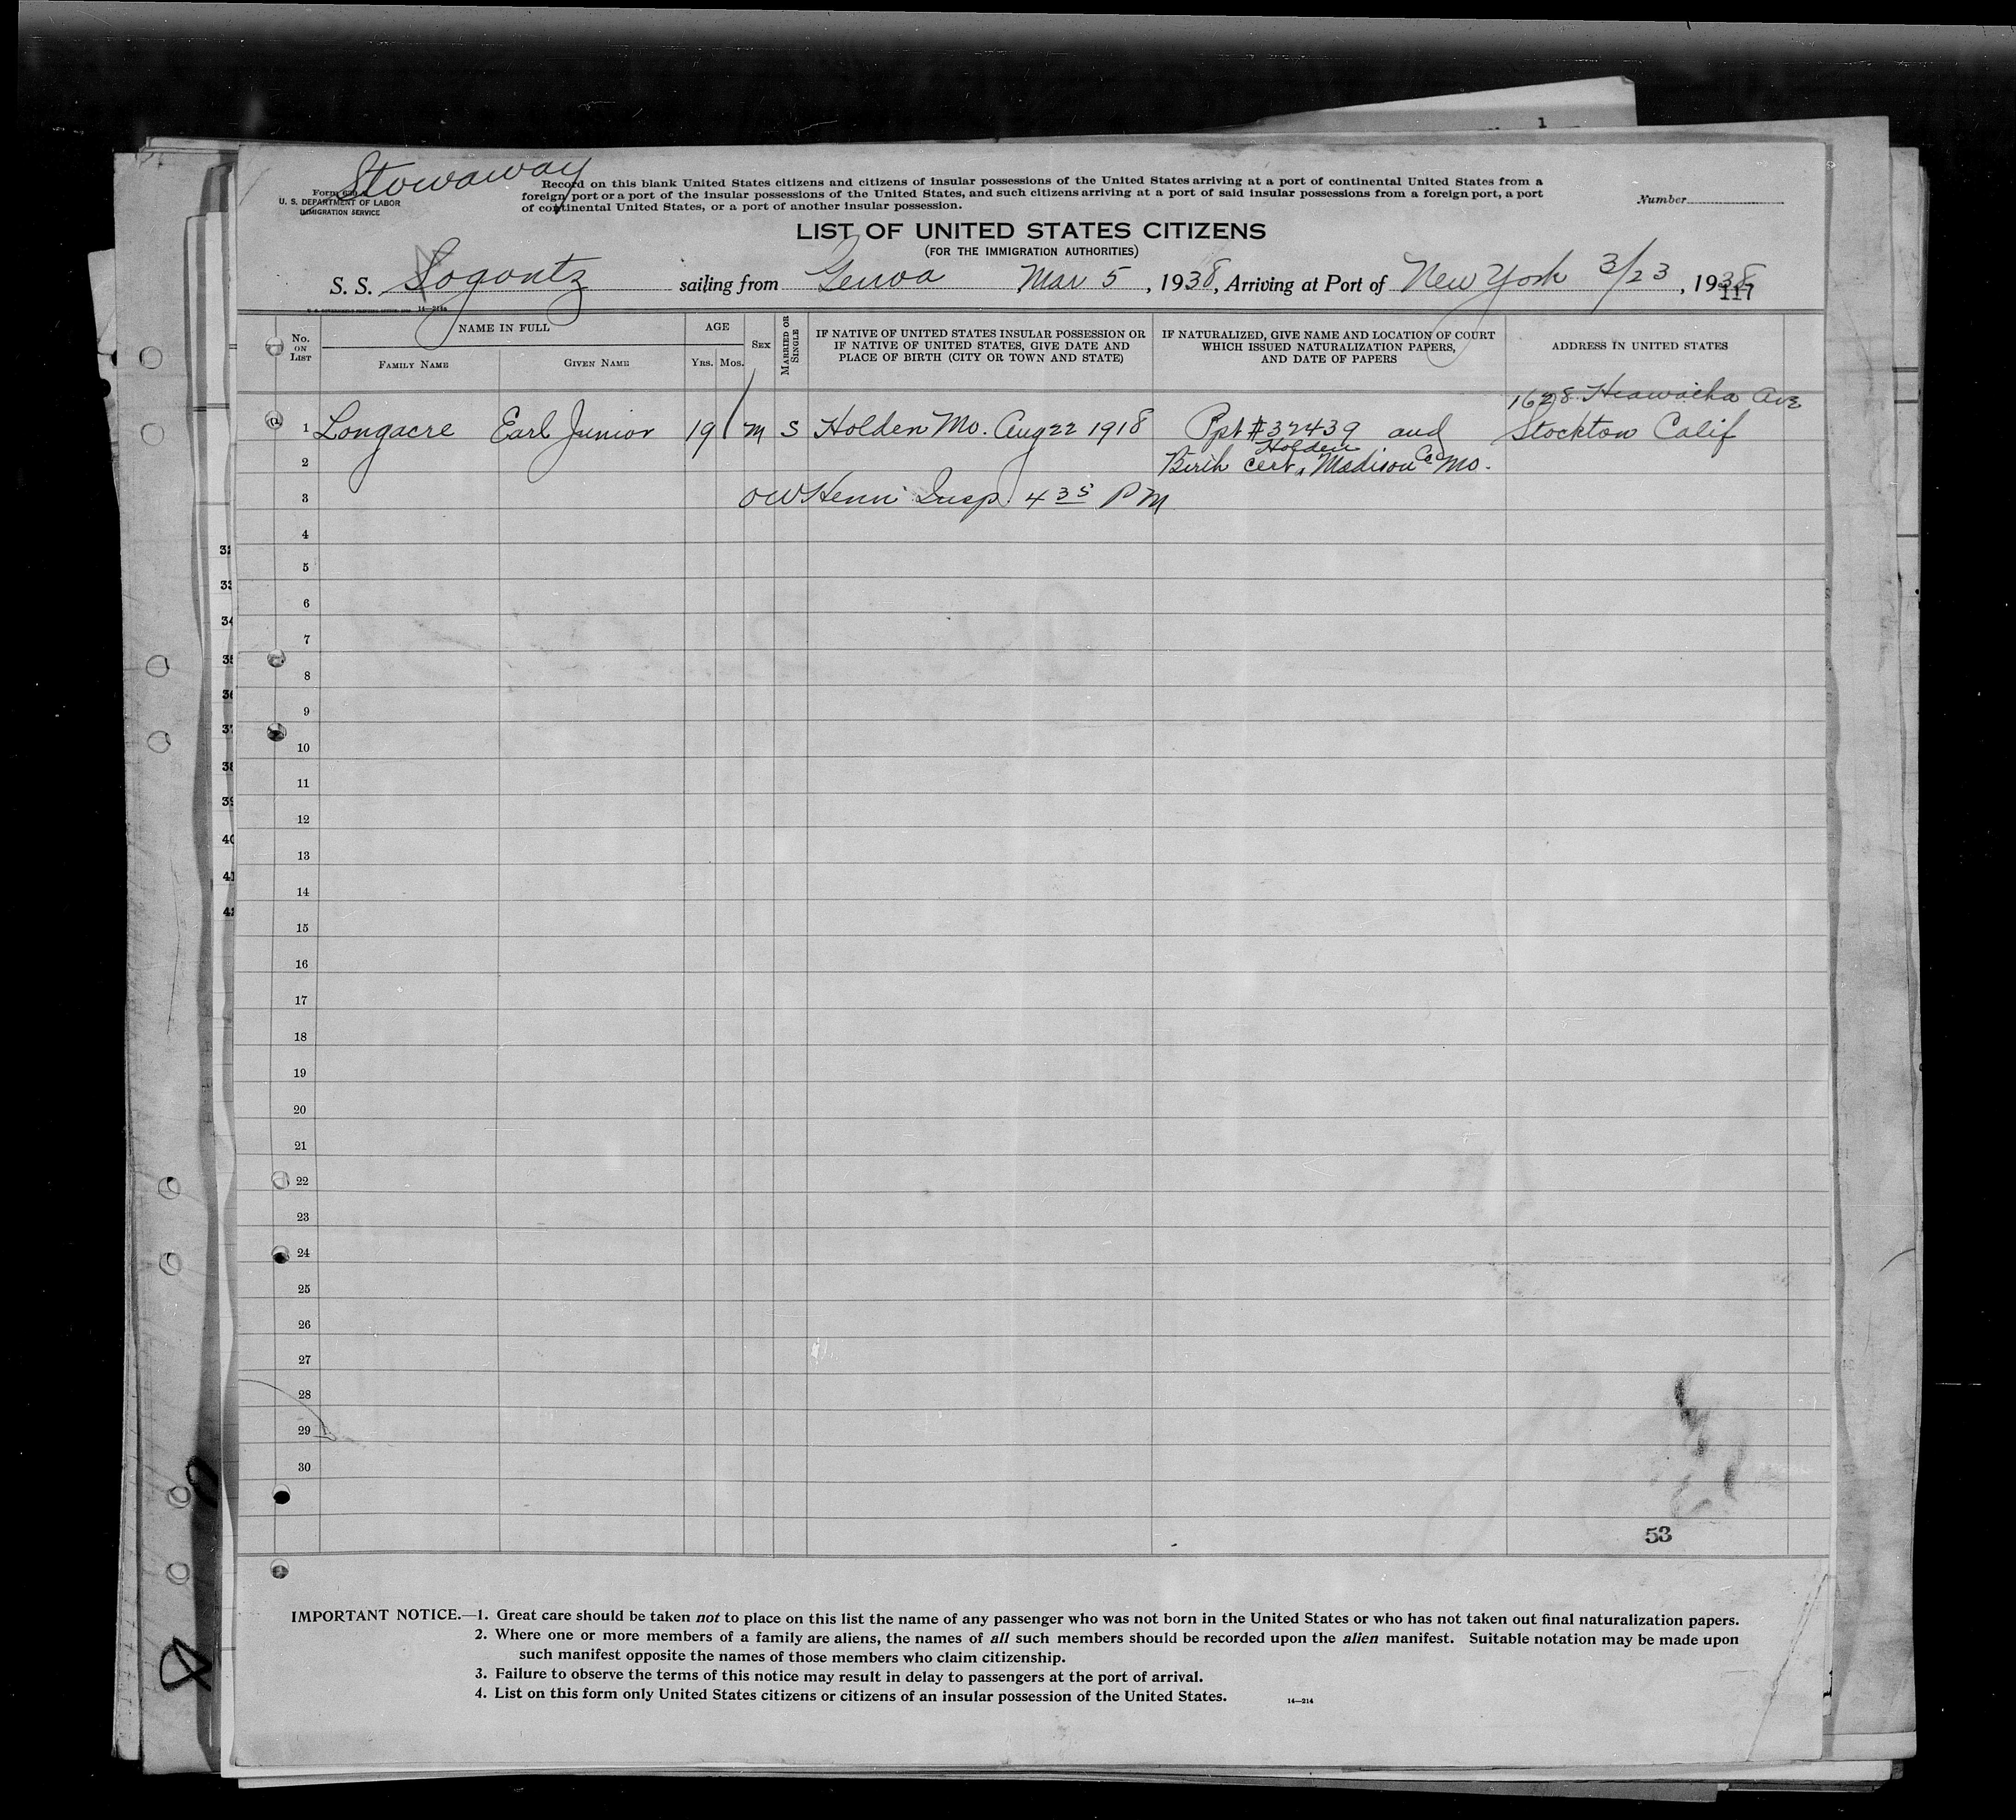 1
Stowaway
Form 630
U. S. DEPARTMENT OF LABOR
IMMIGRATION SERVICE
Record on this blank United States citizens and citizens of insular possessions of the United States arriving at a port of continental United States from a
foreign port or a port of the insular possessions of the United States, and such citizens arriving at a port of said insular possessions from a foreign port, a port
of continental United States, or a port of another insular possession.
Number
LIST OF UNITED STATES CITIZENS
(FOR THE IMMIGRATION AUTHORITIES)
S. S. Sogontz sailing from Genoa Mar 5, 1938, Arriving at Port of New York 3/23, 1938
117
No. ON LIST
NAME IN FULL
FAMILY NAME GIVEN NAME
AGE
YRS. MOS.
SEX
MARRIED OR SINGLE
IF NATIVE OF UNITED STATES INSULAR POSSESSION OR
IF NATIVE OF UNITED STATES, GIVE DATE AND
PLACE OF BIRTH (CITY OR TOWN AND STATE)
IF NATURALIZED, GIVE NAME AND LOCATION OF COURT
WHICH ISSUED NATURALIZATION PAPERS,
AND DATE OF PAPERS
ADDRESS IN UNITED STATES
1628 Hiawatha Ave
1 Longacre Earl Junior 19 m S Holden Mo. Aug 22 1918 Ppt #32439 and Stockton Calif
Holden
2 Birth Cert, Madison Co Mo.
3 Insp. 4 35 PM
4
5
6
7
8
9
10
11
12
13
14
15
16
17
18
19
20
21
22
23
24
25
26
27
28
29
30
53
IMPORTANT NOTICE.—1. Great care should be taken not to place on this list the name of any passenger who was not born in the United States or who has not taken out final naturalization papers.
2. Where one or more members of a family are aliens, the names of all such members should be recorded upon the alien manifest. Suitable notation may be made upon
such manifest opposite the names of those members who claim citizenship.
3. Failure to observe the terms of this notice may result in delay to passengers at the port of arrival.
4. List on this form only United States citizens or citizens of an insular possession of the United States.
14—214